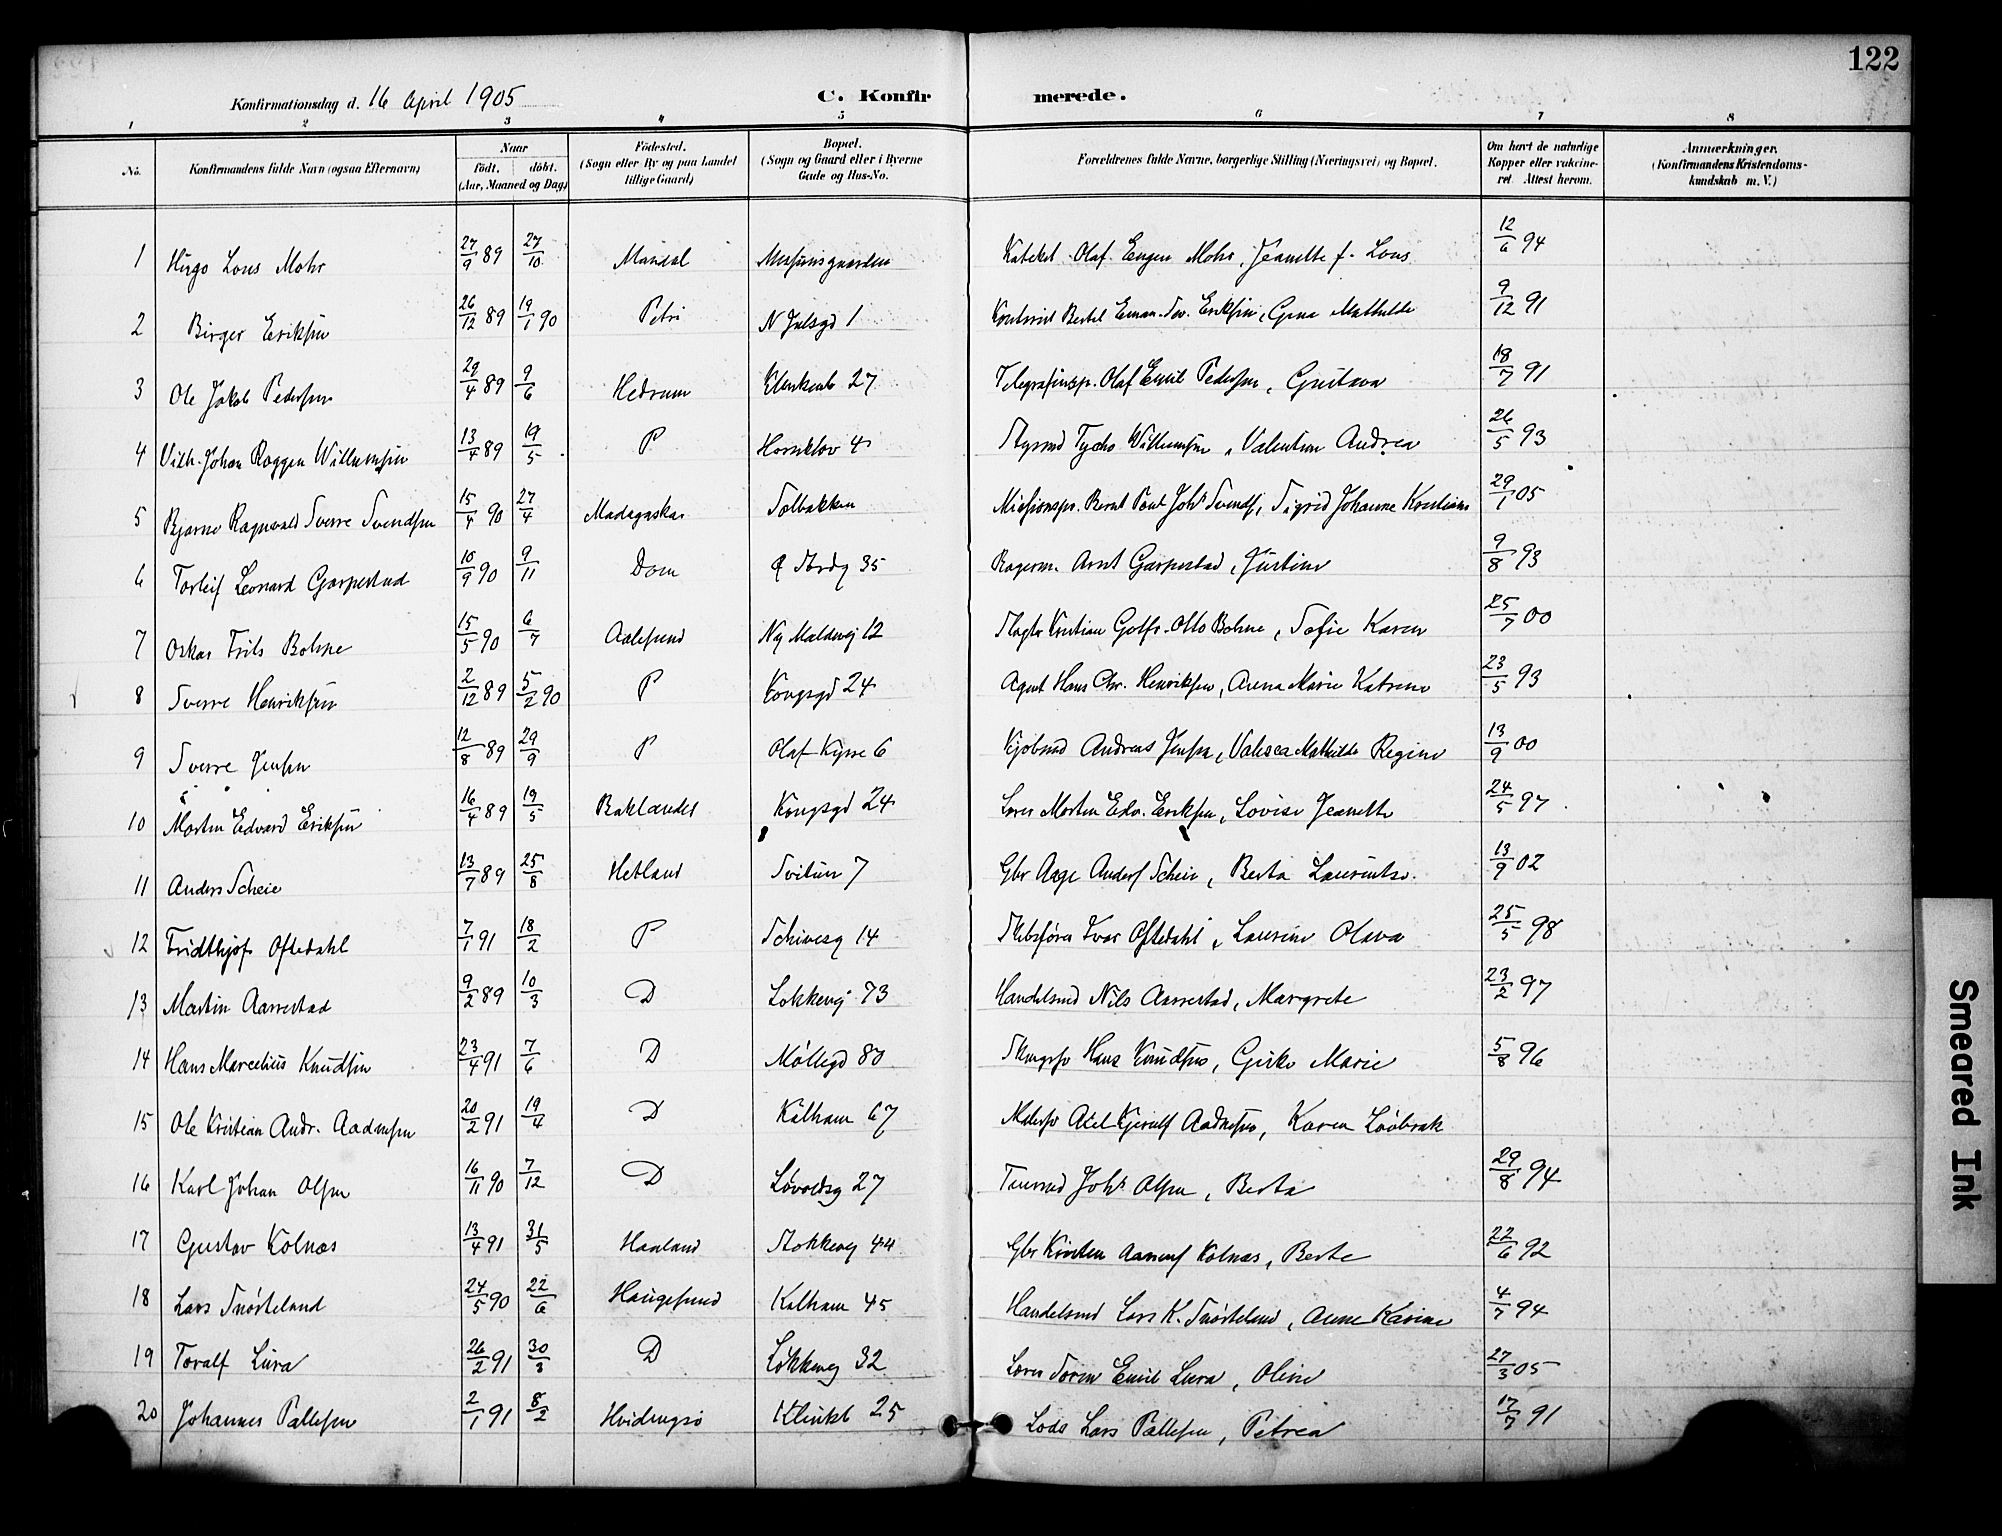 122
Konfirmationsdag d. 16 April 1905 C. Konfirmerede.
1 2 3 4 5 6 7 8
No. Konfirmandens fulde Navn (ogsaa Efternavn) Naar født. døbt. (Aar, Maaned og Dag) Fødested. (Sogn eller By og paa Landet tillige Gaard) Bopæl. (Sogn og Gaard eller i Byerne Gade og Hus-No. Forældrenes fulde Navne, borgerlige Stilling (Næringsvei) og Bopæl. Om havt de naturlige Kopper eller vakcineret. Attest herom. Anmærkninger. (Konfirmandens Kristendomskundskab m. V.)
1 Hugo Lous Mohr 27/9 89 27/10 Mandal Katekel Olaf Eugen Mohr, Jeanette f. Lous 12/6 94
2 Birger Eriksen 26/12 89 19/1 90 Petri 1 Bertel Eriksen, Gina Mathilde 9/12 91
3 Ole Jakob Pedersen 29/4 89 9/6 Hedrum 27 Olaf Emil Pedersen, Gustava 18/7 91
4 Vilh. Johan Roggen Willumsen 13/4 89 19/5 P Hornklov 4 Tycho Willumsen, Valentine Andrea 26/5 93
5 Bjarne Ragnvald Sverre Svendsen 15/4 90 27/4 Madagaskar Solbakken Missionspr. Bernt Johs Svends, Sigrid Johanne 29/1 05
6 Torleif Leonard Garpestad 10/9 90 9/11 Dom 35 Arnt Garpestad, Justine 9/8 93
7 Oskar Frits Bohne 15/5 90 6/7 Aalesund 12 Kristian Otto Bohne, Sofie Karen 25/7 00
8 Sverre Henriksen 2/12 89 5/2 90 P Kongsgd 24 Agent Hans Chr. Henriksen, Anna Marie Katrine 23/5 93
9 Sverre Jensen 12/8 89 29/9 P Olaf Kyrre 6 Kjøbmd Andreas Jensen, Valesca Mathilde Regine 13/9 00
10 Morten Edvard Eriksen 16/4 89 19/5 Baklandet Kongsgd 24 Morten Edv. Eriksen, Lovise Jeanette 24/5 97
11 Anders Scheie 13/7 89 25/8 Hetland 7 Gbr Aage Scheie, Berta 13/9 02
12 Fridthjof Oftedahl 7/1 91 18/2 P 14 Ivar Oftedahl, Laurine Olava 25/5 98
13 Martin Aarrestad 9/2 89 10/3 D Løkkevej 73 Handelsmd Nils Aarrestad, Margrete 23/2 97
14 Hans Marcelius Knudsen 23/4 91 7/6 D Møllegd 80 Hans Knudsen, Marie 5/8 96
15 Ole Kristian Andr. Aadnesen 20/2 91 19/4 D Kalham 67 Axel Aadnesen, Karen 19/4
16 Karl Johan Olsen 16/11 90 7/12 D 27 Johs Olsen, Berta 29/8 94
17 Gustav Kolnæs 13/4 91 31/5 Haaland 44 Gbr Kolnæs, Berte 22/6 92
18 Lars Snørteland 24/5 90 22/6 Haugesund Kalham 45 Handelsmd Lars K. Snørteland, Anne Karine 4/7 94
19 Toralf Lura 26/2 91 30/3 D Løkkeveg 32 Søren Emil Lura, Oline 27/3 05
20 Johannes Pallesen 2/1 91 8/2 Hvidingsø Klinkb 25 Lods Lars Pallesen, Petrea 17/7 91
Smeared Ink